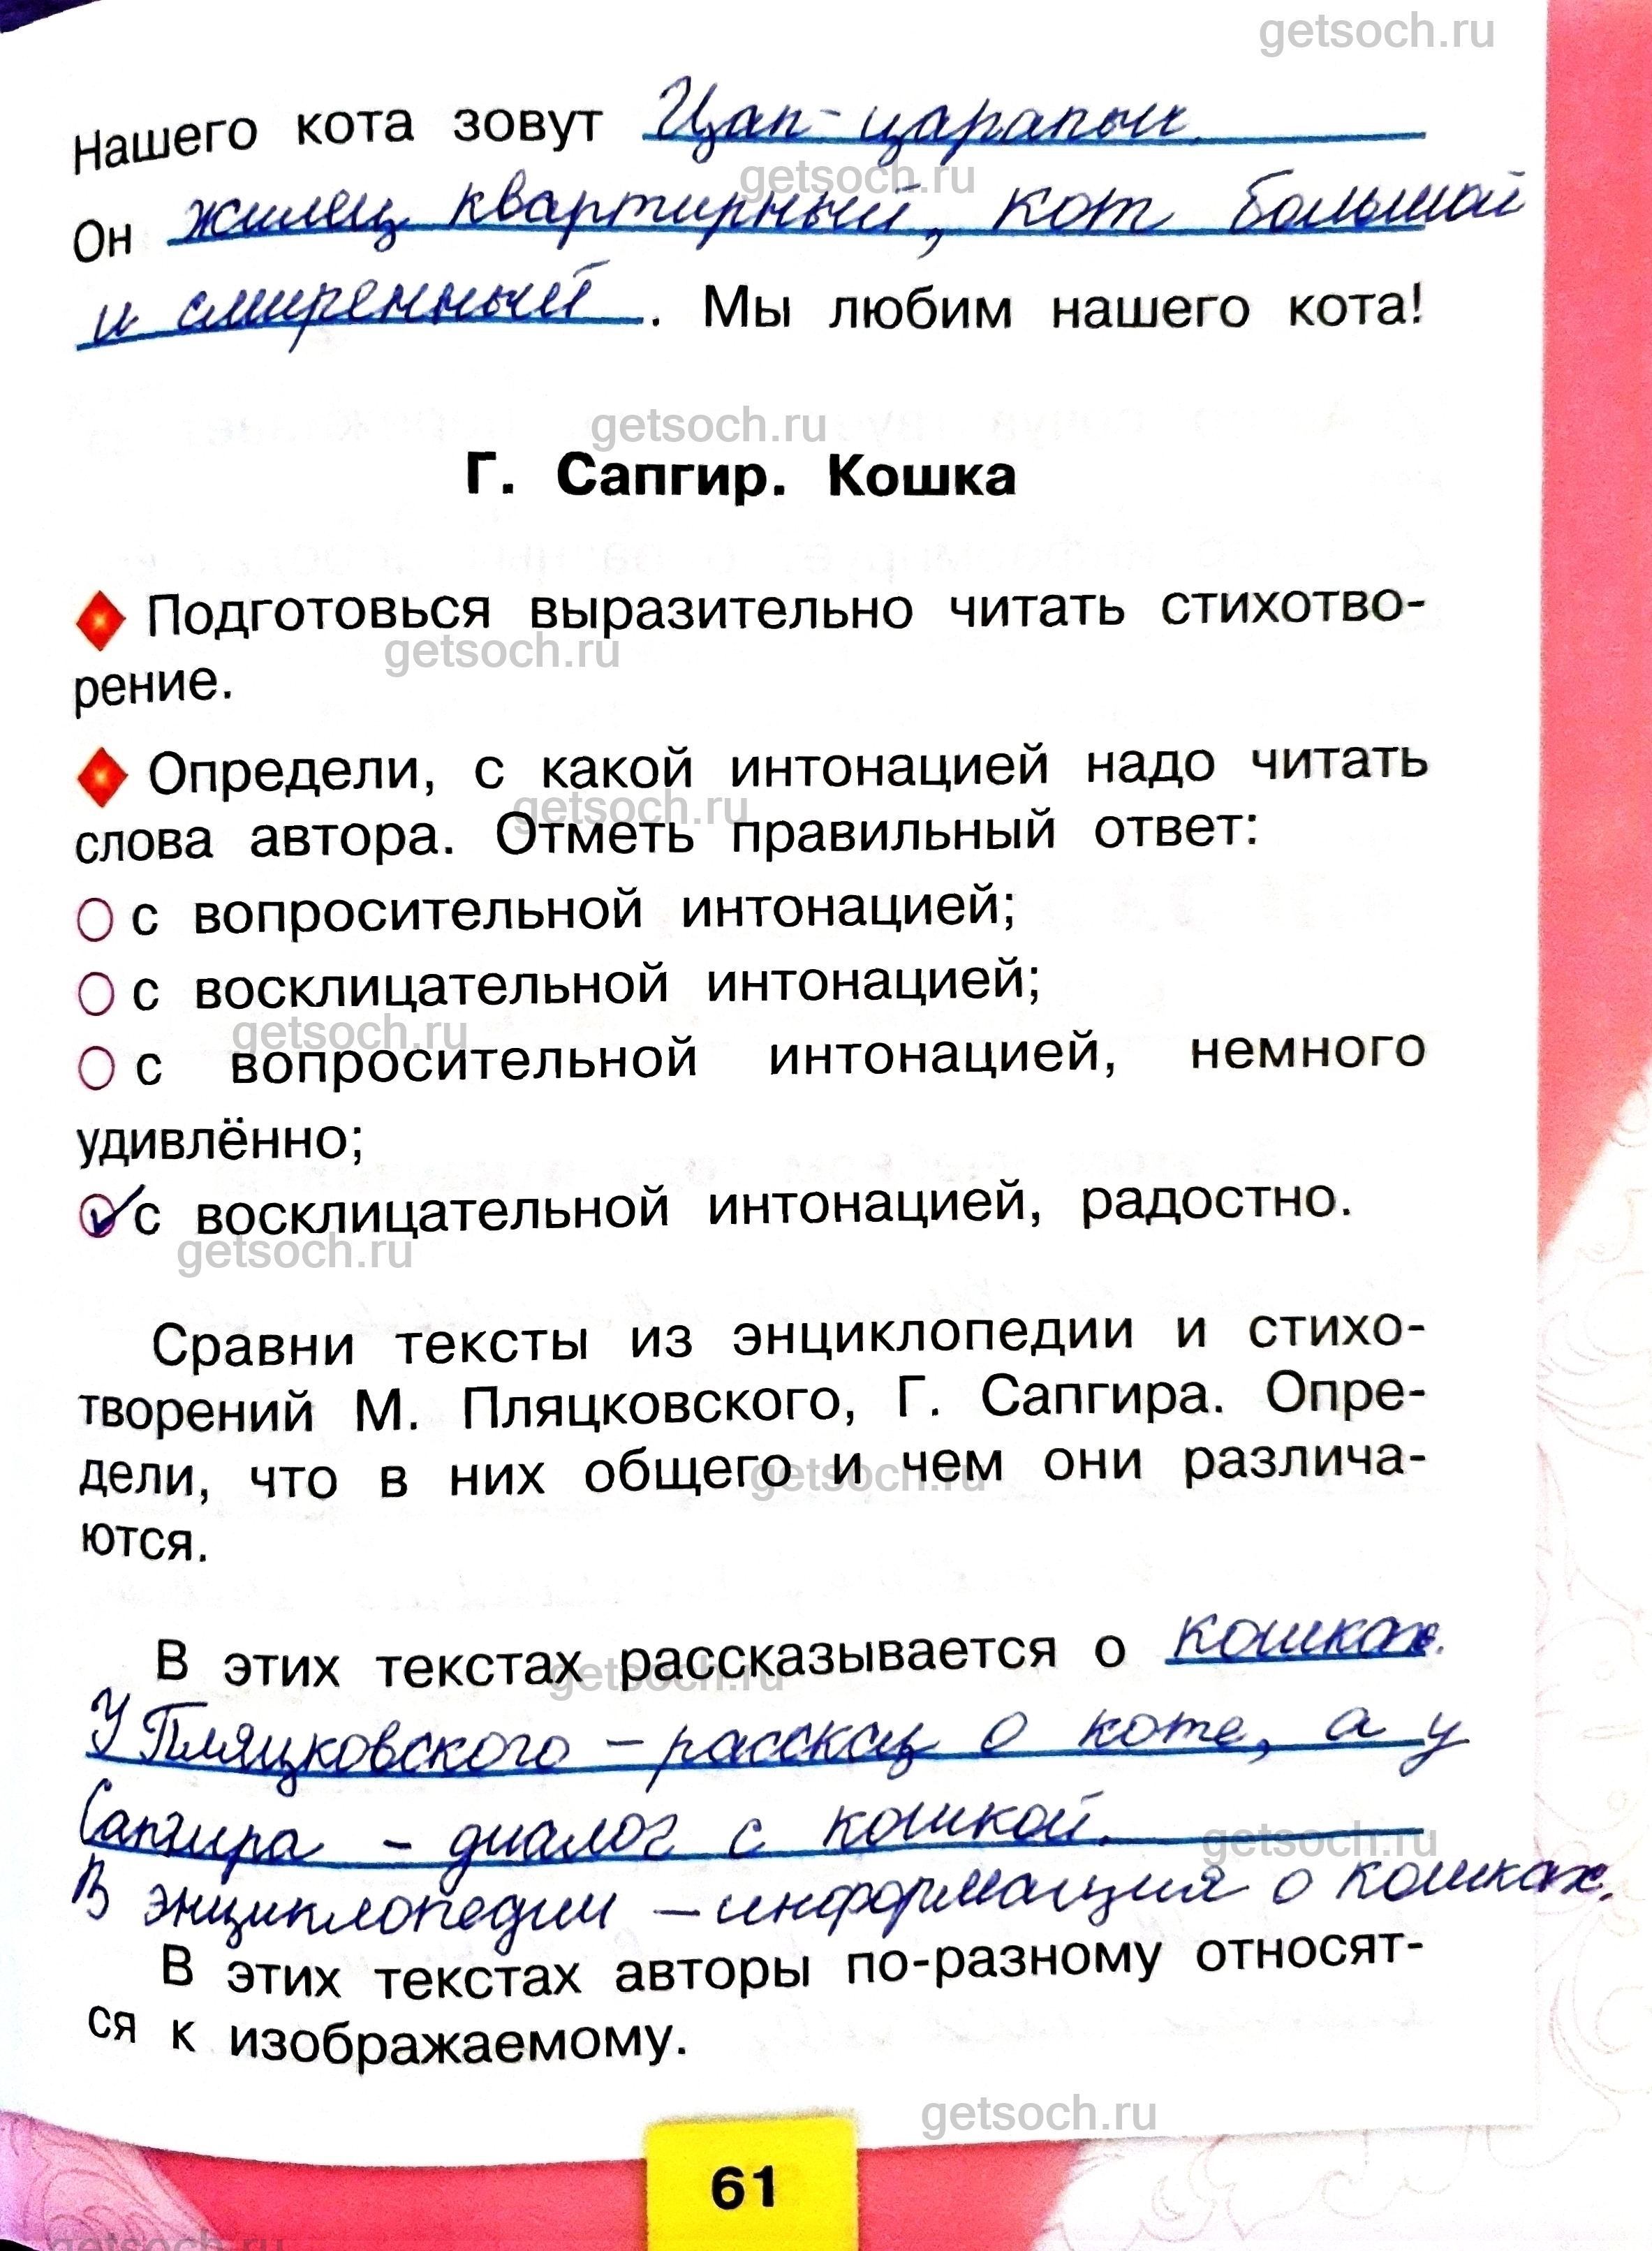 getsoch.ru
Нашего кота зовут Цап-царапыч.
getsoch.ru
Он жилец квартирный, кот большой
и смиренный. Мы любим нашего кота!
getsoch.ru
Г. Сапгир. Кошка
Подготовься выразительно читать стихотво-
getsoch.ru
рение.
Определи, с какой интонацией надо читать
getsoch.ru
слова автора. Отметь правильный ответ:
с вопросительной интонацией;
с восклицательной интонацией;
getsoch.ru
с вопросительной интонацией, немного
удивлённо;
с восклицательной интонацией, радостно.
getsoch.ru
Сравни тексты из энциклопедии и стихо-
творений М. Пляцковского, Г. Сапгира. Опре-
дели, что в них общего и чем они различа-
getsoch.ru
ются.
В этих текстах рассказывается о кошках.
getsoch.ru
У Пляцковского – рассказ о коте, а у
Сапгира – диалог с кошкой.
getsoch.ru
В энциклопедии – информация о кошках.
В этих текстах авторы по-разному относят-
ся к изображаемому.
getsoch.ru
61
getsoch.ru